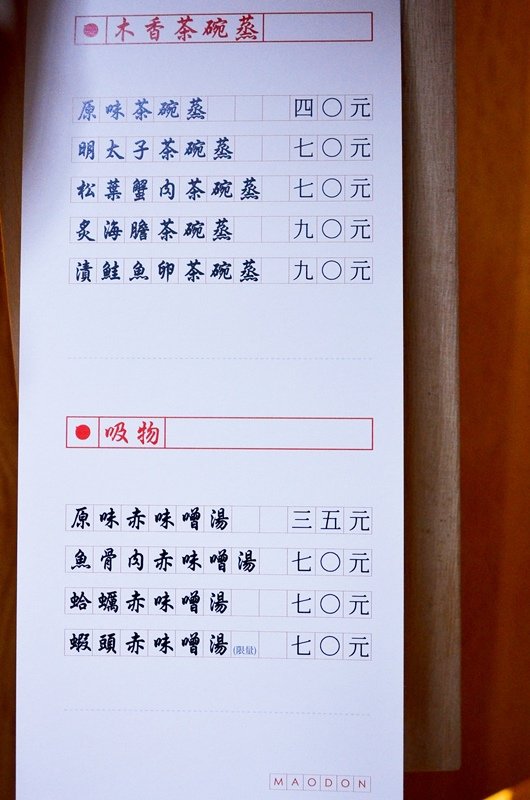 木香茶碗蒸
原味茶碗蒸 四〇元
明太子茶碗蒸 七〇元
松葉蟹肉茶碗蒸 七〇元
炙海膽茶碗蒸 九〇元
漬鮭魚卵茶碗蒸 九〇元
吸物
原味赤味噌湯 三五元
魚骨肉赤味噌湯 七〇元
蛤蠣赤味噌湯 七〇元
蝦頭赤味噌湯(限量) 七〇元
MAODON